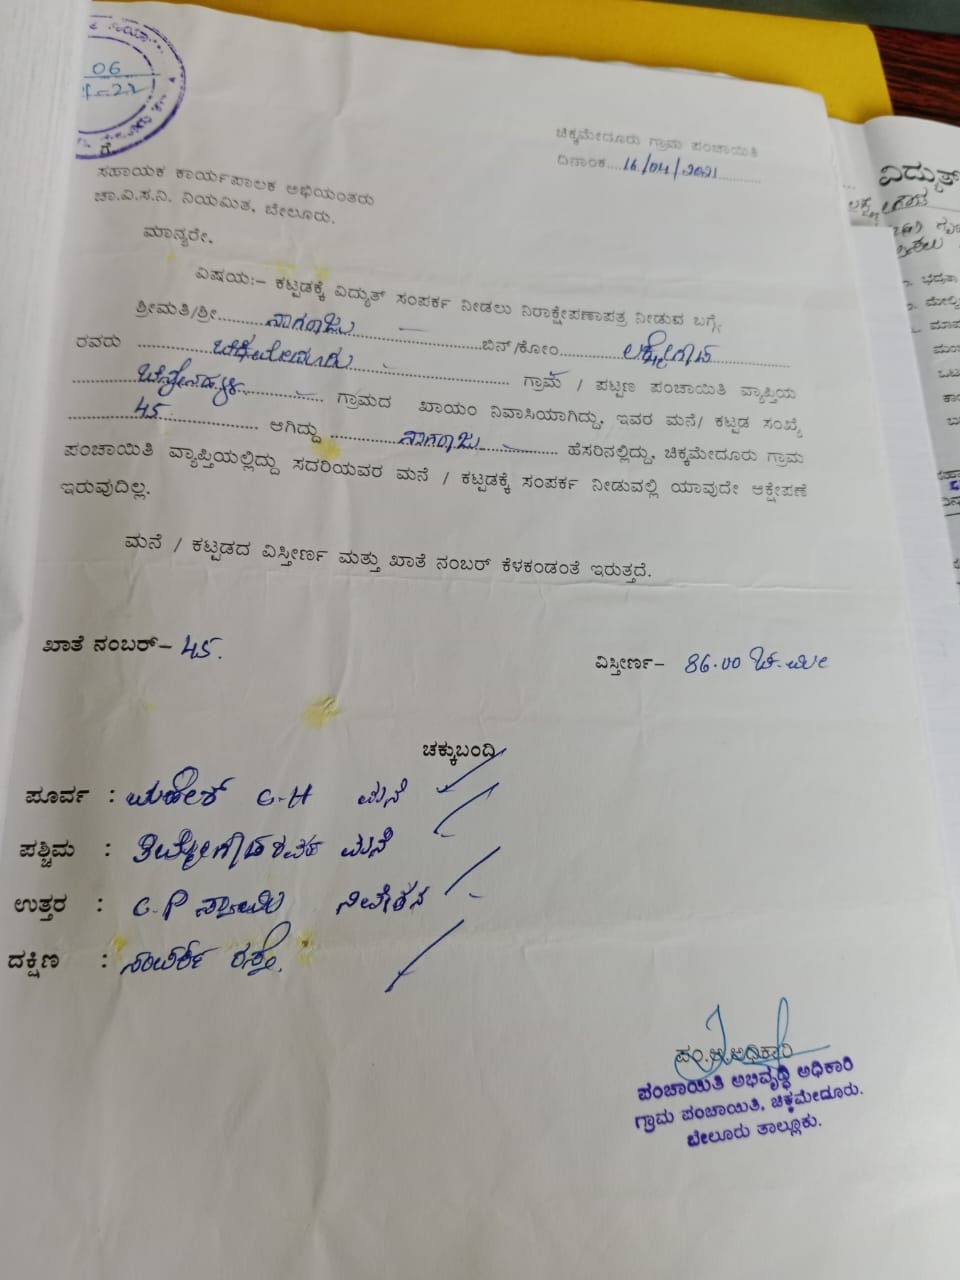 06
ಚಿಕ್ಕಮೇದೂರು ಗ್ರಾಮ ಪಂಚಾಯಿತಿ
ದಿನಾಂಕ....16/04/2021............
ಗೆ
ಸಹಾಯಕ ಕಾರ್ಯಪಾಲಕ ಅಭಿಯಂತರು
ಚಾ.ವಿ.ಸ.ನಿ. ನಿಯಮಿತ, ಬೇಲೂರು.
ಮಾನ್ಯರೇ,
ವಿಷಯ:– ಕಟ್ಟಡಕ್ಕೆ ವಿದ್ಯುತ್ ಸಂಪರ್ಕ ನೀಡಲು ನಿರಾಕ್ಷೇಪಣಾಪತ್ರ ನೀಡುವ ಬಗ್ಗೆ
ಶ್ರೀಮತಿ/ಶ್ರೀ.......... ನಾಗರಾಜು ..........ಬಿನ್/ಕೋಂ.......... ಲಕ್ಕೇಗೌಡ
ರವರು .......... ಚಿಕ್ಕಮೇದೂರು .......... ಗ್ರಾಮ / ಪಟ್ಟಣ ಪಂಚಾಯಿತಿ ವ್ಯಾಪ್ತಿಯ
.......... ಗ್ರಾಮದ ಖಾಯಂ ನಿವಾಸಿಯಾಗಿದ್ದು, ಇವರ ಮನೆ/ ಕಟ್ಟಡ ಸಂಖ್ಯೆ
.......... 45 .......... ಆಗಿದ್ದು .......... ನಾಗರಾಜು .......... ಹೆಸರಿನಲ್ಲಿದ್ದು, ಚಿಕ್ಕಮೇದೂರು ಗ್ರಾಮ
ಪಂಚಾಯಿತಿ ವ್ಯಾಪ್ತಿಯಲ್ಲಿದ್ದು ಸದರಿಯವರ ಮನೆ / ಕಟ್ಟಡಕ್ಕೆ ಸಂಪರ್ಕ ನೀಡುವಲ್ಲಿ ಯಾವುದೇ ಆಕ್ಷೇಪಣೆ
ಇರುವುದಿಲ್ಲ.
ಮನೆ / ಕಟ್ಟಡದ ವಿಸ್ತೀರ್ಣ ಮತ್ತು ಖಾತೆ ನಂಬರ್ ಕೆಳಕಂಡಂತೆ ಇರುತ್ತದೆ.
ಖಾತೆ ನಂಬರ್– 45.
ವಿಸ್ತೀರ್ಣ– 86.00 ಚ.ಮೀ
ಚಕ್ಕುಬಂದಿ
ಪೂರ್ವ : ಮಹೇಶ್ C-H ಮನೆ
ಪಶ್ಚಿಮ : ತಿಮ್ಮೇಗೌಡರವರ ಮನೆ
ಉತ್ತರ : C.P ಸ್ವಾಮಿ ನಿವೇಶನ
ದಕ್ಷಿಣ : ಸಂಪರ್ಕ ರಸ್ತೆ.
ಪಂ.ಅ.ಅಧಿಕಾರಿ
ಪಂಚಾಯಿತಿ ಅಭಿವೃದ್ಧಿ ಅಧಿಕಾರಿ
ಗ್ರಾಮ ಪಂಚಾಯಿತಿ, ಚಿಕ್ಕಮೇದೂರು.
ಬೇಲೂರು ತಾಲ್ಲೂಕು.
ವಿದ್ಯುತ್